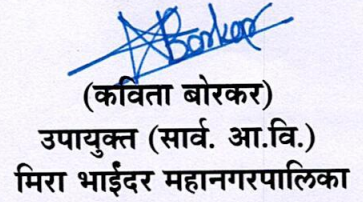 Borkar
(कविता बोरकर)
उपायुक्त (सार्व. आ.वि.)
मिरा भाईंदर महानगरपालिका